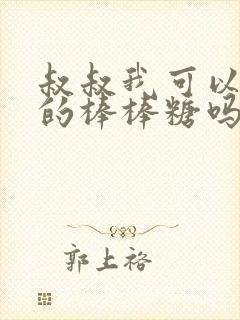 叔叔我可以
的棒棒糖吗
郭上裕